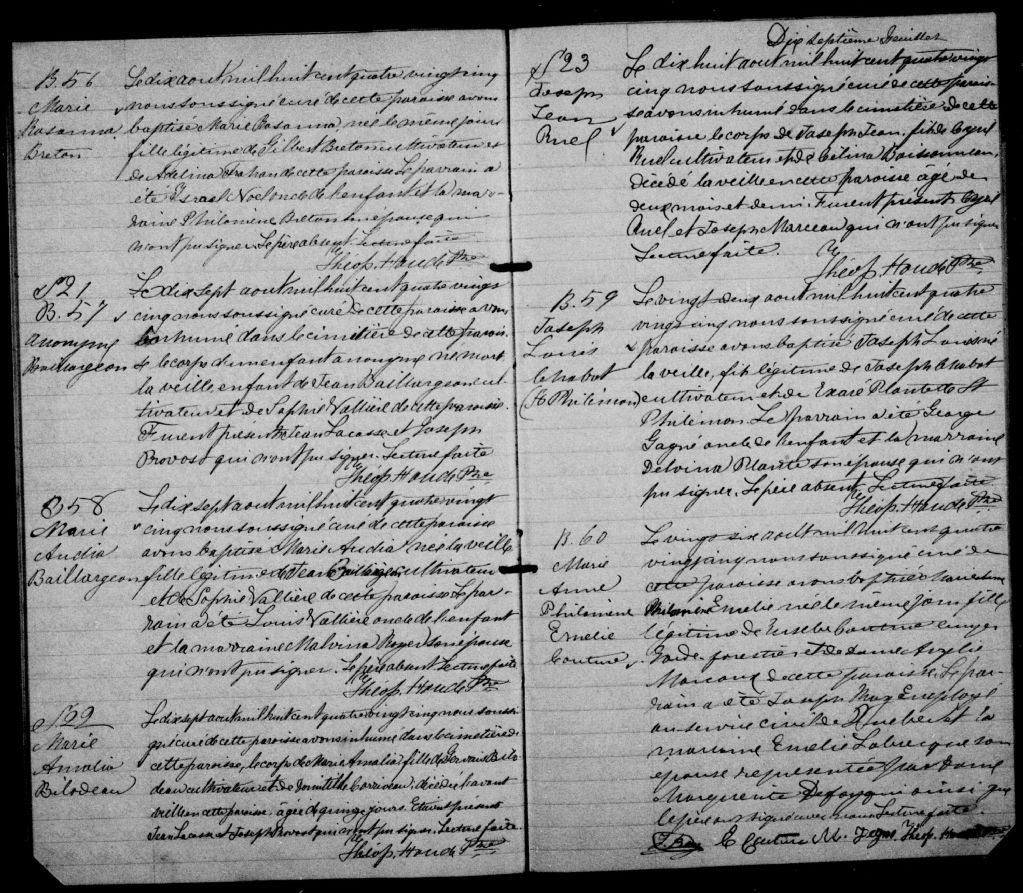 B.56
Marie
Rosanna
Breton
Le dix aout mil huit cent quatre vingt cinq
nous soussigné curé de cette paroisse avons
baptisé Marie Rosanna, née le même jour
fille légitime de Gilbert Breton cultivateur et
de Adelina Trahan de cette paroisse Le parrain a
été Israel Noel oncle de l'enfant et la mar-
raine Philomène Breton son épouse qui
n'ont pu signer. Le père absent. Lecture faite
Théop. Houde Ptre
S21
B.57
Anonyme
Baillargeon
Le dix sept aout mil huit cent quatre vingt
cinq nous soussigné curé de cette paroisse avons
inhumé dans le cimetière de cette parois-
se le corps d'un enfant anonyme né mort
la veille enfant de Jean Baillargeon cul-
tivateur et de Sophie Vallière de cette paroisse.
Furent présents Jean Lacasse et Joseph
Provost qui n'ont pu signer. Lecture faite
Théop. Houde Ptre
B58
Marie
Audia
Baillargeon
Le dix sept aout mil huit cent quatre vingt
cinq nous soussigné curé de cette paroisse
avons baptisé Marie Audia née la veille
fille légitime de Jean Baillargeon cultivateur
et de Sophie Vallière de cette paroisse. Le par-
rain a été Louis Vallière oncle de l'enfant
et la marraine Malvina Royer son épouse
qui n'ont pu signer. Le père absent Lecture faite
Théop. Houde Ptre
S22
Marie
Amalia
Bilodeau
Le dix sept aout mil huit cent quatre vingt cinq nous soussi-
gné curé de cette paroisse avons inhumé dans le cimetière de
cette paroisse, le corps de Marie Amalia, fille de Gervais Bilo-
deau cultivateur et de Domitille Corriveau, décédée l'avant
veille en cette paroisse âgée de quinze jours. Etaient présent
Jean Lacasse et Joseph Provost qui n'ont pu signer. Lecture faite.
Théop. Houde Ptre
Dix septième Feuillet
S23
Joseph
Jean
Ruel
Le dix huit aout mil huit cent quatre vingt
cinq nous soussigné curé de cette parois-
se avons inhumé dans le cimetière de cette
paroisse le corps de Joseph Jean, fils de Cyril
Ruel cultivateur et de Célina Boissonneau,
décédé la veille en cette paroisse âgé de
deux mois et demi. Furent présent Cyril
Ruel et Joseph Marceau qui n'ont pu signer
Lecture faite.
Théop. Houde Ptre
B.59
Joseph
Louis
Chabot
(St Philémon)
Le vingt deux aout mil huit cent quatre
vingt cinq nous soussigné curé de cette
paroisse avons baptisé Joseph Louis né
la veille, fils légitime de Joseph Chabot
cultivateur et de Exaré Plante de St
Philémon. Le parrain a été George
Gagné oncle de l'enfant et la marraine
Delvina Plante son épouse qui n'ont
pu signer. Le père absent. Lecture faite
Théop. Houde Ptre
B.60
Marie
Anne
Philomène
Emelie
Couture
Le vingt six aout mil huit cent quatre
vingt cinq nous soussigné curé de
cette paroisse avons baptisé Marie Anne
Philomène Emelie née le même jour fille
légitime de Eusebe Couture
Garde-forestier et de Dame
de cette paroisse. Le par-
rain a été Joseph Roy Employé
au service civil de Québec et la
marraine Emelie Labrecque son
épouse représentée par Dame
Marguerite qui ainsi que
le père ont signé avec nous Lecture faite.
J. Roy E Couture M. Théop. Houde Ptre